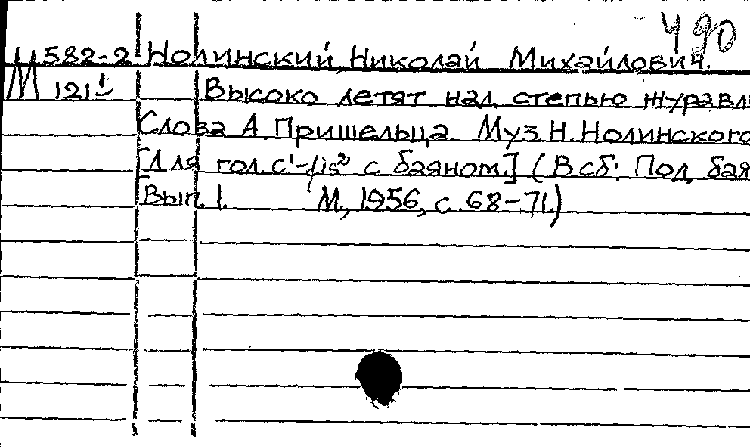 490
М582-2 Нолинский, Николай Михайлович.
М 121 1 Высоко летят над степью журавл
Слова А. Пришельца. Муз. Н. Нолинского
[Для гол. с¹-fis² с баяном.] (В сб: Под бая
Вып. 1. М., 1956, с. 68-71.)